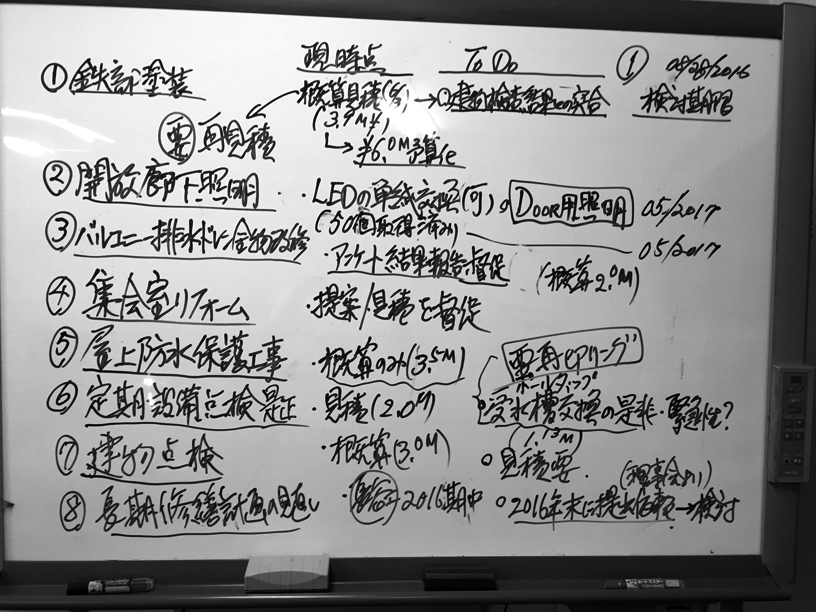 現時点 To Do ① 08/08/2016
①鉄部塗装
概算見積(多) → ○建物検査結果との突合 検討期間
(3.9M¥)
要 再見積
→ ¥6.0M予算化
②開放廊下照明 ・LEDの単純交換(可) 。Door用照明 05/2017
(50個取得済み)
③バルコニー排水ドレン金物改修 05/2017
・アンケート結果報告督促
(概算2.0M)
④集会室リフォーム ・提案/見積を督促
⑤屋上防水保護工事 ・概算のみ(3.5M) 要
ボールタップ
⑥定期設備点検是正 ・見積(2.0M) 受水槽交換の是非・緊急性?
(1.13M)
⑦建物点検 ・概算(3.0M) ○見積要
(理事会より)
⑧長期修繕計画の見直し ・2016期中 ○2016年末に提出 →検討
ボードマスター